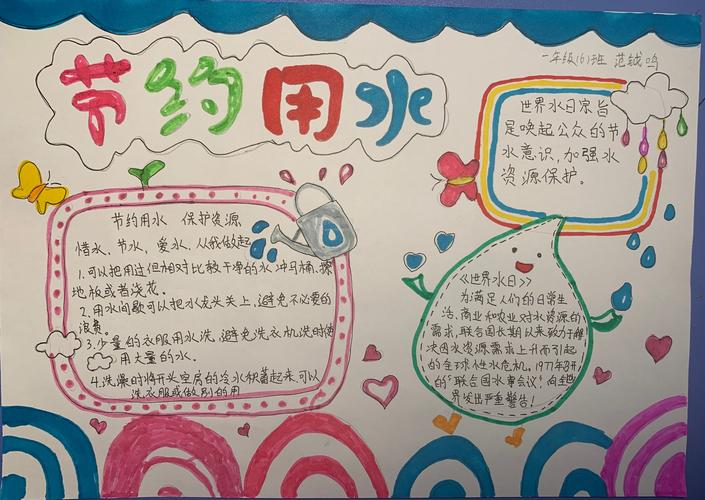 节约用水
一年级(6)班 范钺鸣
世界水日宗旨
是唤起公众的节
水意识,加强水
资源保护。
节约用水 保护资源
惜水、节水、爱水、从我做起
1.可以把用过但相对比较干净的水冲马桶、擦
地板或者浇花。
2.用水间歇可以把水龙头关上,避免不必要的
浪费。
3.少量的衣服用水洗,避免洗衣机洗时使
用大量的水。
4.洗澡时将开头空居的冷水积蓄起来,可以
洗衣服或做别的用
《世界水日》
为满足人们的日常生
活、商业和农业对水资源的
需求,联合国长期以来致力于解
决因水资源需求上升而引起
的全球性水危机。1977年召开
的“联合国水事会议”向全世
界发出严重警告!